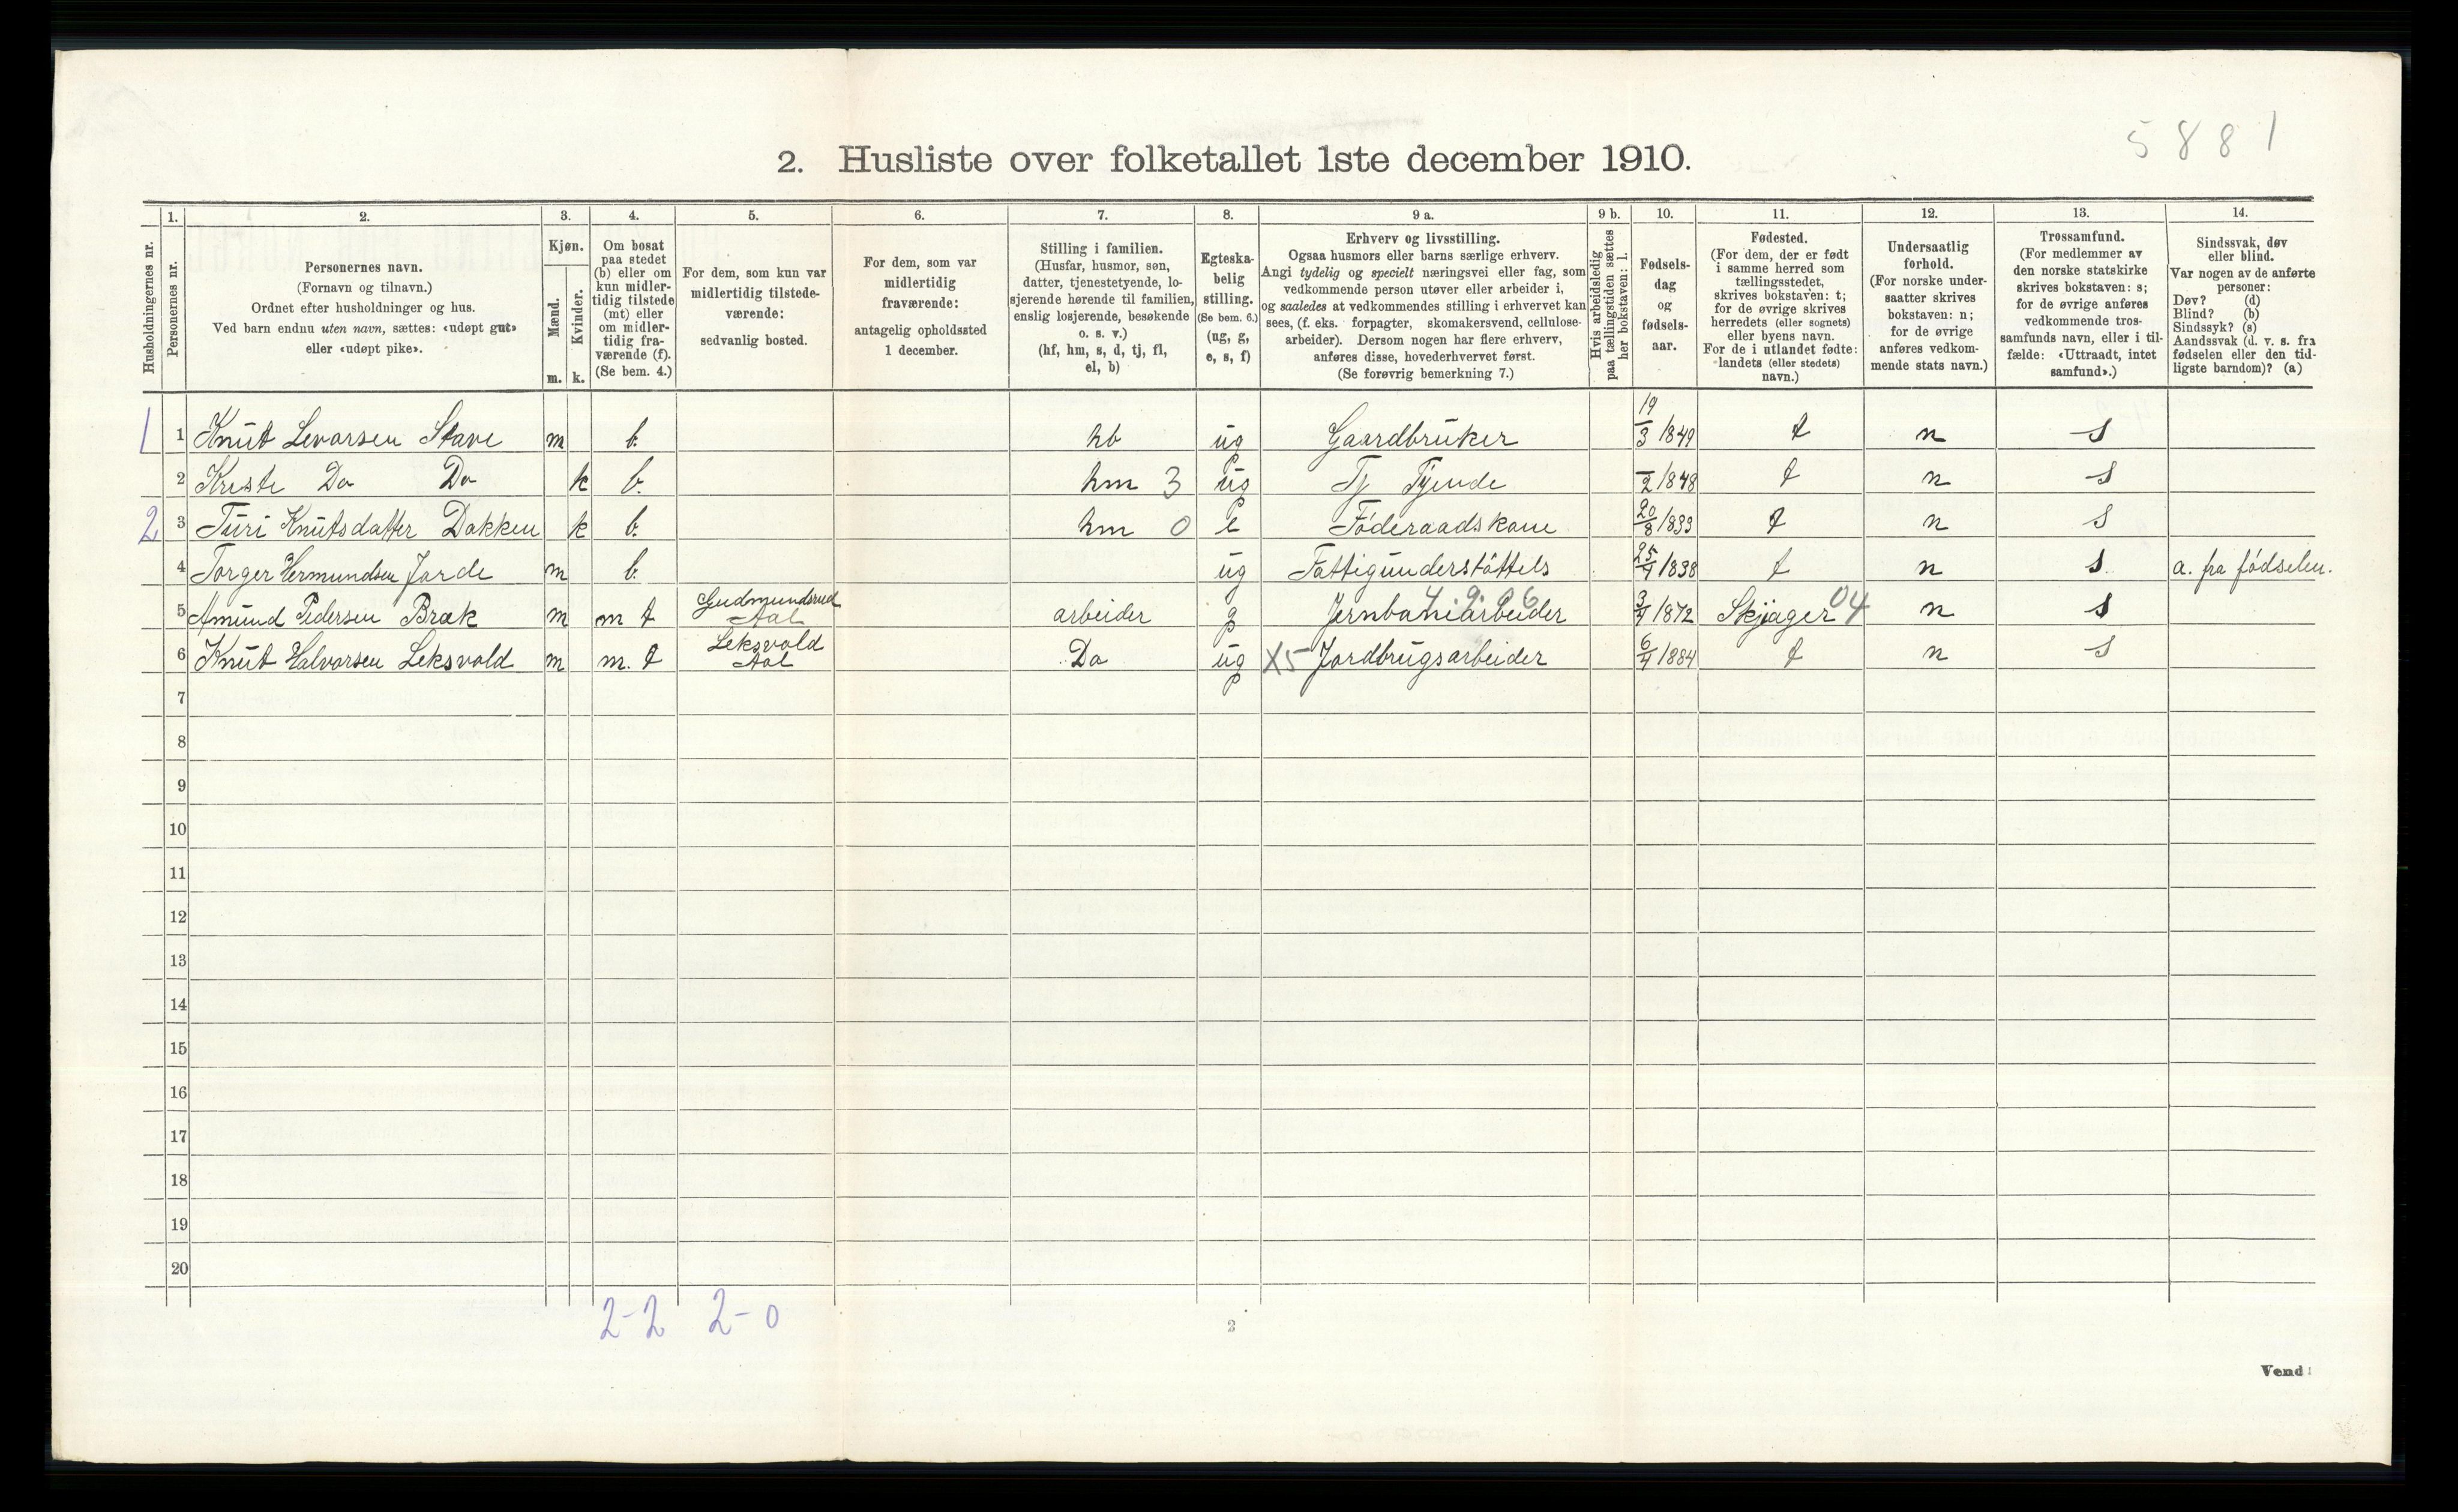 5881
2. Husliste over folketallet 1ste december 1910.
Husholdningernes nr.
1.
Personernes nr.
2.
Personernes navn.
(Fornavn og tilnavn.)
Ordnet efter husholdninger og hus.
Ved barn endnu uten navn, sættes: «udøpt gut»
eller «udøpt pike».
3.
Kjøn.
Mænd.
m.
Kvinder.
k.
4.
Om bosat
paa stedet
(b) eller om
kun midler-
tidig tilstede
(mt) eller
om midler-
tidig fra-
værende (f).
(Se bem. 4.)
5.
For dem, som kun var
midlertidig tilstede-
værende:
sedvanlig bosted.
6.
For dem, som var
midlertidig
fraværende:
antagelig opholdssted
1 december.
7.
Stilling i familien.
(Husfar, husmor, søn,
datter, tjenestetyende, lo-
sjerende hørende til familien,
enslig losjerende, besøkende
o. s. v.)
(hf, hm, s, d, tj, fl,
el, b)
8.
Egteska-
belig
stilling.
(Se bem. 6.)
(ug, g,
e, s, f)
9 a.
Erhverv og livsstilling.
Ogsaa husmors eller barns særlige erhverv.
Angi tydelig og specielt næringsvei eller fag, som
vedkommende person utøver eller arbeider i,
og saaledes at vedkommendes stilling i erhvervet kan
sees, (f. eks. forpagter, skomakersvend, cellulose-
arbeider). Dersom nogen har flere erhverv,
anføres disse, hovederhvervet først.
(Se forøvrig bemerkning 7.)
9 b.
Hvis arbeidsledig
paa tællingstiden sættes
her bokstaven: l.
10.
Fødsels-
dag
og
fødsels-
aar.
11.
Fødested.
(For dem, der er født
i samme herred som
tællingsstedet,
skrives bokstaven: t;
for de øvrige skrives
herredets (eller sognets)
eller byens navn.
For de i utlandet fødte:
landets (eller stedets)
navn.)
12.
Undersaatlig
forhold.
(For norske under-
saatter skrives
bokstaven: n;
for de øvrige
anføres vedkom-
mende stats navn.)
13.
Trossamfund.
(For medlemmer av
den norske statskirke
skrives bokstaven: s;
for de øvrige anføres
vedkommende tros-
samfunds navn, eller i til-
fælde: «Uttraadt, intet
samfund».)
14.
Sindssvak, døv
eller blind.
Var nogen av de anførte
personer:
Døv? (d)
Blind? (b)
Sindssyk? (s)
Aandssvak (d. v. s. fra
fødselen eller den tid-
ligste barndom)? (a)
1 1 Knut Levorsen Stave m b. hb ug Gaardbruker 19/3 1849 t n s
2 Kreste Do Do k b. hm 3 ug Tj Tjende /2 1848 t n s
2 3 Turi Knutsdatter Dokken k b. hm 0 e Föderaadskone 20/8 1833 t n s
4 Torger Hermundsen Jorde m b. ug Fattigunderstöttels 25/7 1838 t n s a. fra födselen.
5 Amund Pedersen Bræk m m t Gudmundsrud Aal arbeider g Jernbanearbeider 4.9.06 3/7 1872 Skjager 04 n s
6 Knut Halvorsen Leksvold m m. t Leksvold Aal Do ug X5 Jordbrugsarbeider 6/7 1884 t n s
7
8
9
10
11
12
13
14
15
16
17
18
19
20
2-2 2-0
2
Vend!